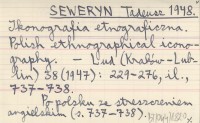 SEWERYN Tadeusz 1948.
Ikonografia etnograficzna.
Polish ethnographical icono-
graphy. — Lud (Kraków-Lub-
lin) 38 (1947): 229-276, il.,
737-738.
Po polsku ze streszczeniem
angielskim (s. 737-738).